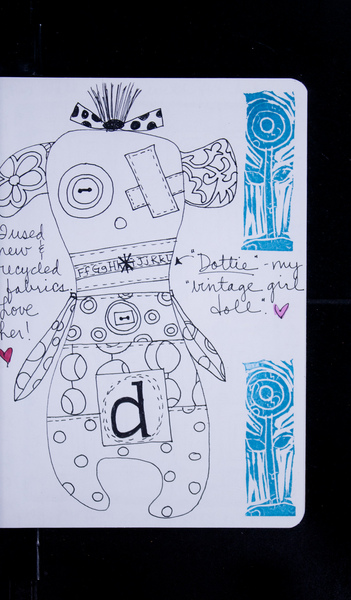 I used
new &
recycled
fabrics.
Love
her!
FFGgHh JjKkL
"Dottie" - my
"vintage girl
doll".
d